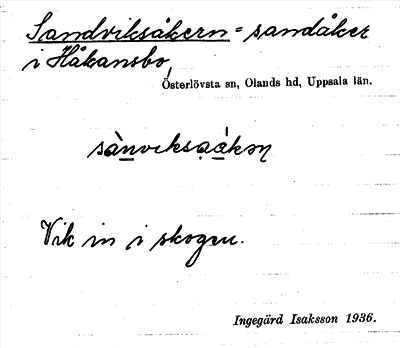 Sandviksåkern = sandåker
i Håkansbo,
Österlövsta sn, Olands hd, Uppsala län.
sànviksạákəṇ
Vik in i skogen.
Ingegärd Isaksson 1936.